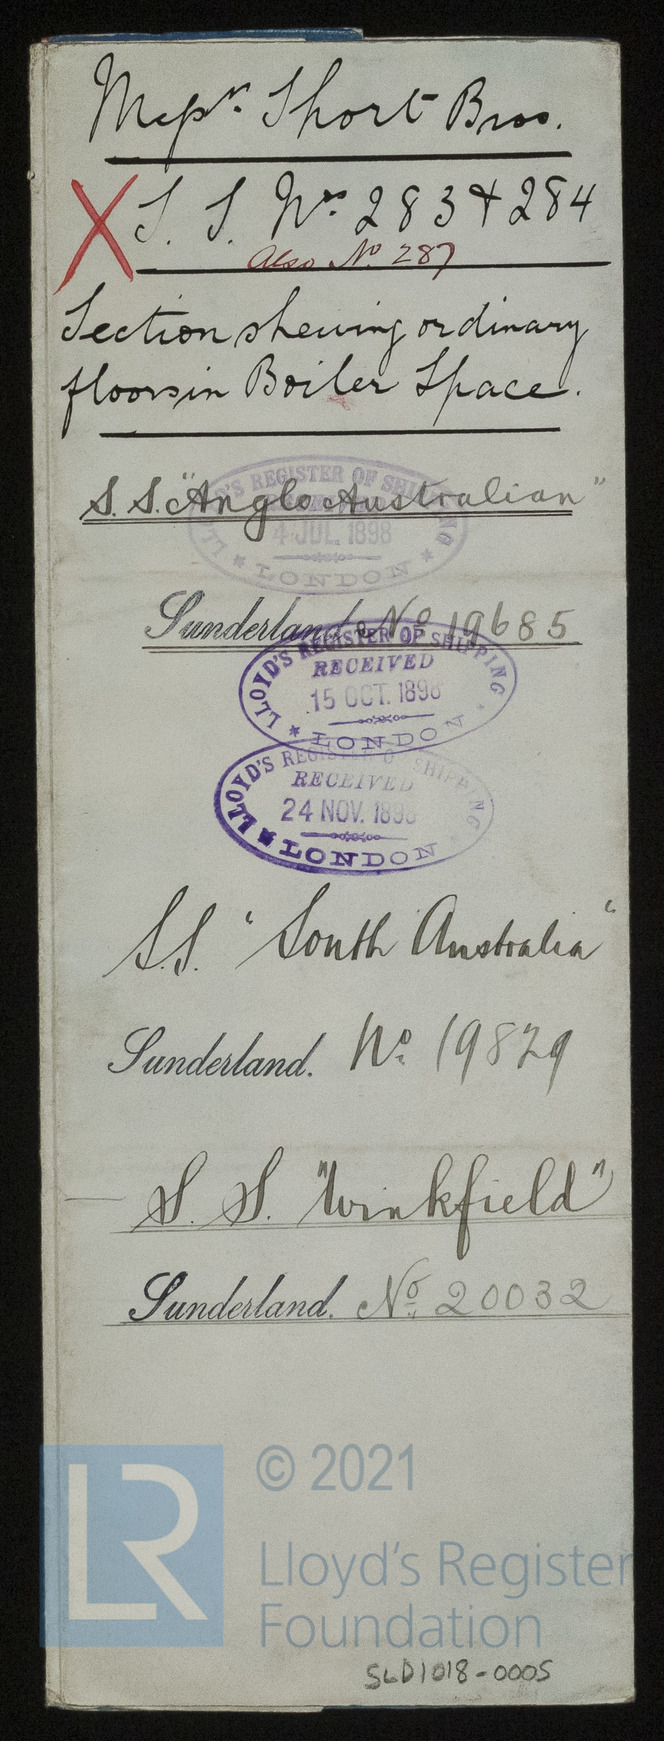 Messrs Short Bros.
X S. S. Nos 283 & 284
Also No 287
Section shewing ordinary
floors in Boiler Space.
LLOYD'S REGISTER OF SHIPPING
S.S. "Anglo Australian"
4 JUL. 1898
LONDON
Sunderland No 19685
LLOYD'S REGISTER OF SHIPPING
RECEIVED
15 OCT. 1898
LONDON
LLOYD'S REGISTER OF SHIPPING
RECEIVED
24 NOV. 1898
LONDON
S.S. "South Australia"
Sunderland. No 19829
S. S. "Winkfield"
Sunderland. No 20032
LR
© 2021
Lloyd's Register
Foundation
SLD1018-0005